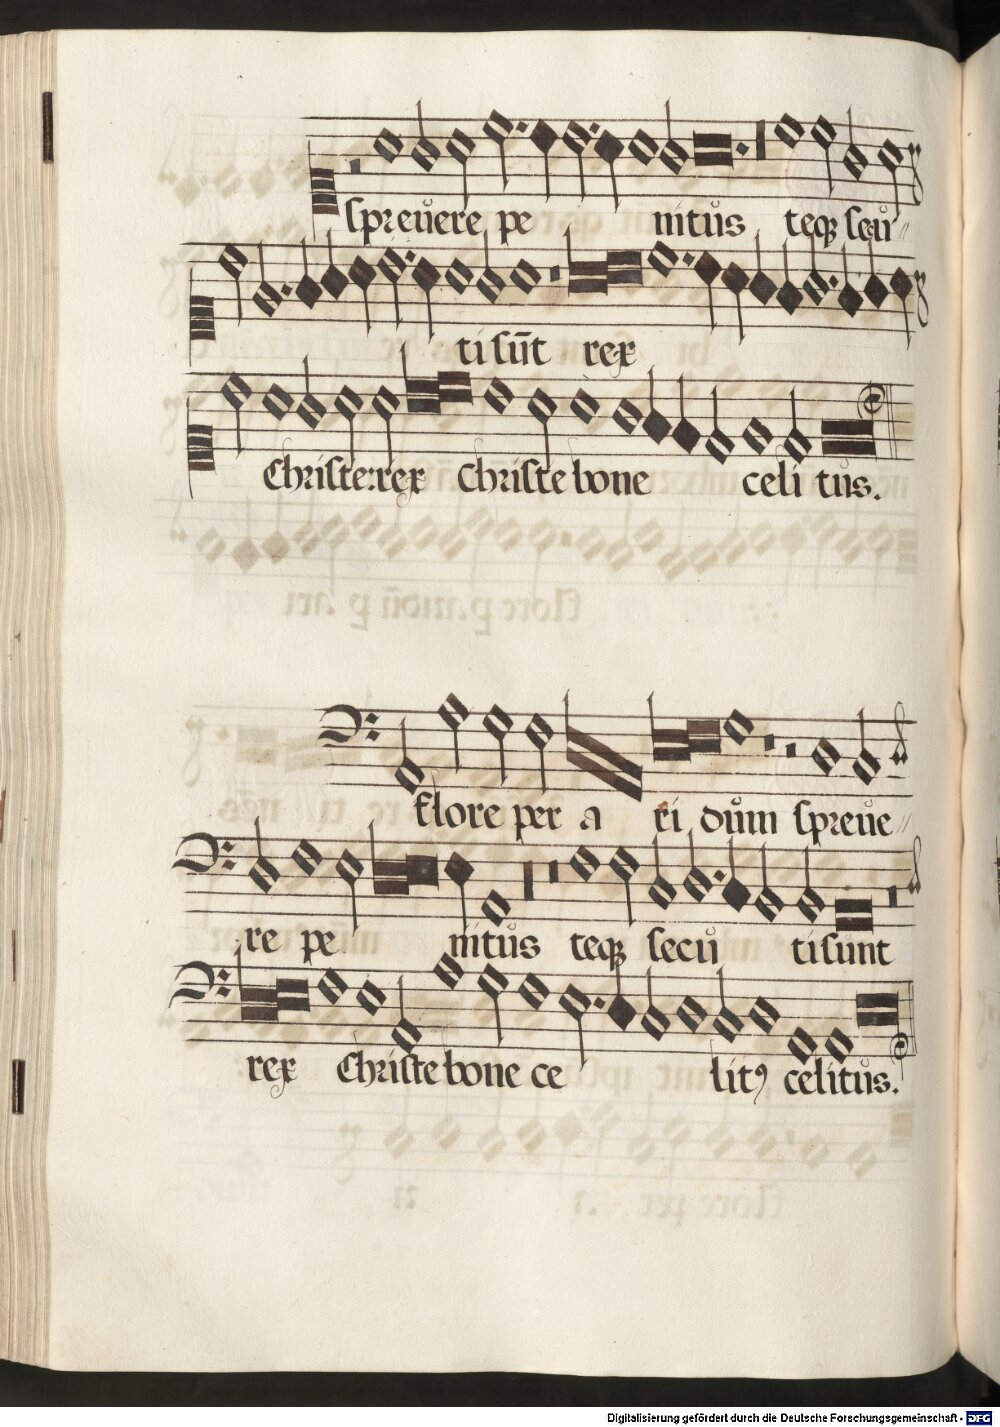 spreuere pe nitus teqȝ secu
ti su̅t rex
Christe: rex Christe bone celi tus.
flore per a ri dum spreue
re pe nitus teqȝ secu ti sunt
rex Christe bone ce litꝰ celitus.
Digitalisierung gefördert durch die Deutsche Forschungsgemeinschaft - DFG